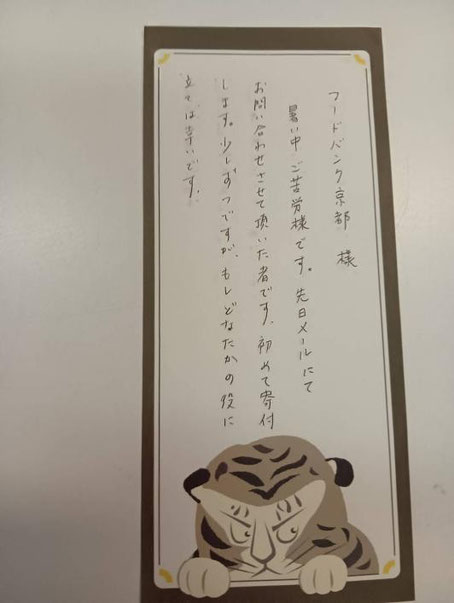 フードバンク京都　様
暑い中ご苦労様です。先日メールにて
お問い合わせさせて頂いた者です。初めて寄付
します。少しずつですが、もしどなたかの役に
立てば幸いです。